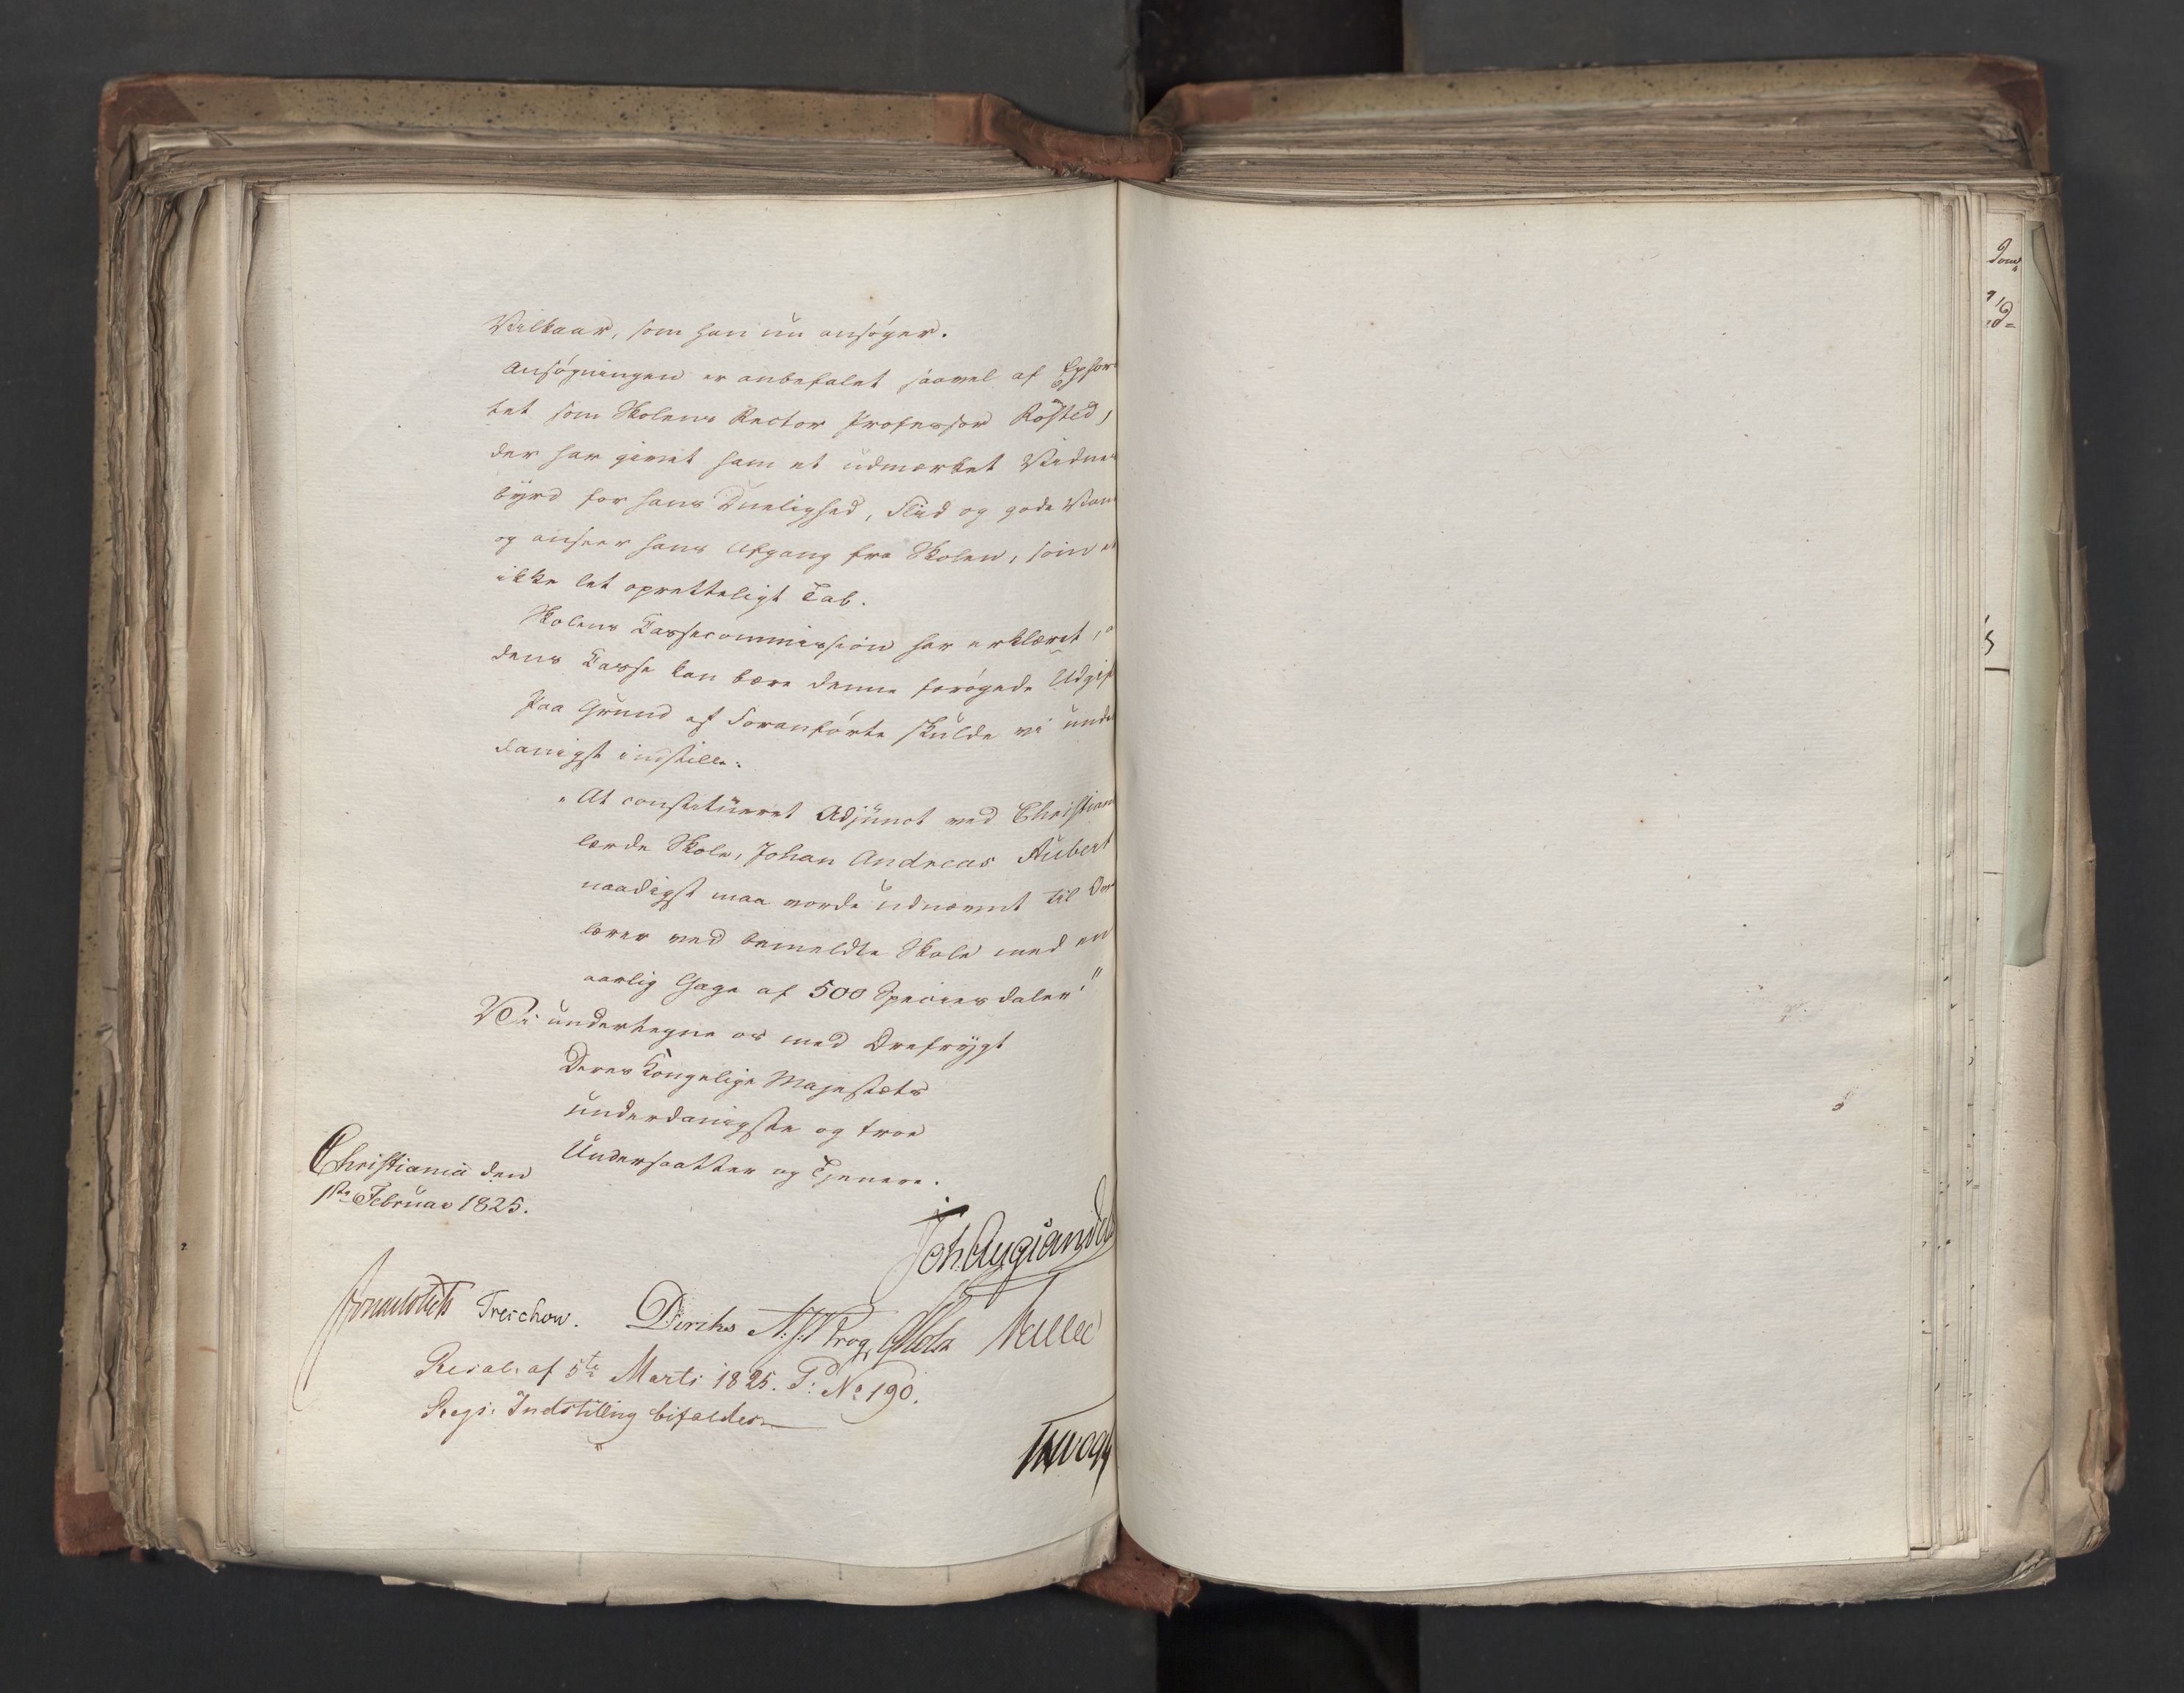 Vilkaar, som han nu ansøger.
Ansøgningen er anbefalet saavel af Ephor
tet som Skolens Rector Professor Røsted,
der har givet ham et udmærket Vidnes
byrd for hans Duelighed, Flid og gode Van
og anseer hans Afgang fra Skolen, som et
ikke let opretteligt Tab.
Skolens Cassecommission har erklæret, a
dens Casse kan bære denne forøgede Udgift
Paa Grund af Foranførte skulde vi unde
danigst indstille:
"At constitueret Adjunct ved Christian
lærde Skole, Johan Andreas Aubert
naadigst maa vorde udnævnt til Over
lærer ved bemeldte Skole med en
aarlig Gage af 500 Speciesdaler"
Vi undertegne os med Ærefrygt
Deres Kongelige Majestæts
underdanigste og troe
Undersaatter og Tjenere.
Christiania den
1ste Februar 1825.
Joh. Aug. Sandels
Sommerhielm Treschow. Diriks Krog Holst
Resol. af 5te Marts 1825. P: No 190.
Regs. Indstilling bifaldes.